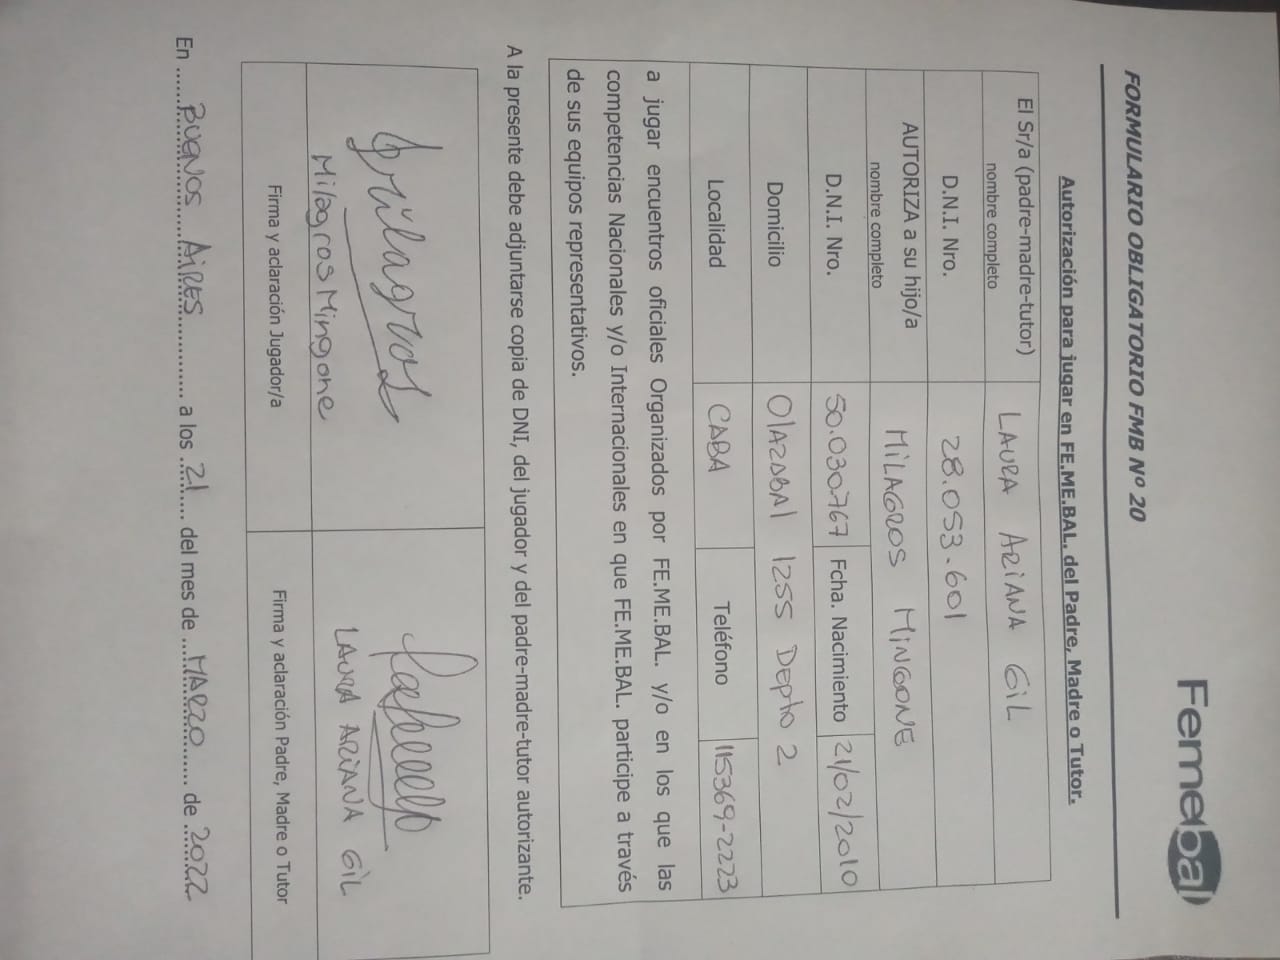 Femebal
FORMULARIO OBLIGATORIO FMB Nº 20
Autorización para jugar en FE.ME.BAL. del Padre, Madre o Tutor.
El Sr/a (padre-madre-tutor)
nombre completo
LAURA ARIANA GIL
D.N.I. Nro.
28.053.601
AUTORIZA a su hijo/a
nombre completo
MILAGROS MINGONE
D.N.I. Nro.
50.030.767
Fcha. Nacimiento
21/02/2010
Domicilio
OlAZABAl 1255 Depto 2
Localidad
CABA
Teléfono
115369-2223
a jugar encuentros oficiales Organizados por FE.ME.BAL. y/o en los que las
competencias Nacionales y/o Internacionales en que FE.ME.BAL. participe a través
de sus equipos representativos.
A la presente debe adjuntarse copia de DNI, del jugador y del padre-madre-tutor autorizante.
Milagros
Milagros Mingone
LAURA ARIANA GIL
Firma y aclaración Jugador/a
Firma y aclaración Padre, Madre o Tutor
En ...... BUENOS AIRES ............... a los ... 21 ..... del mes de ... MARZO ......... de ... 2022